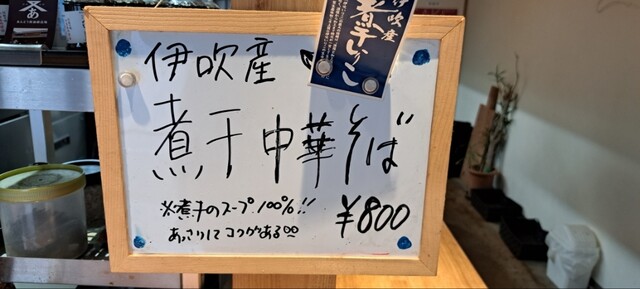 伊吹産
煮干中華そば
※煮干のスープ100%!!
あっさりしてコクがある
¥800
伊吹産
煮干いりこ